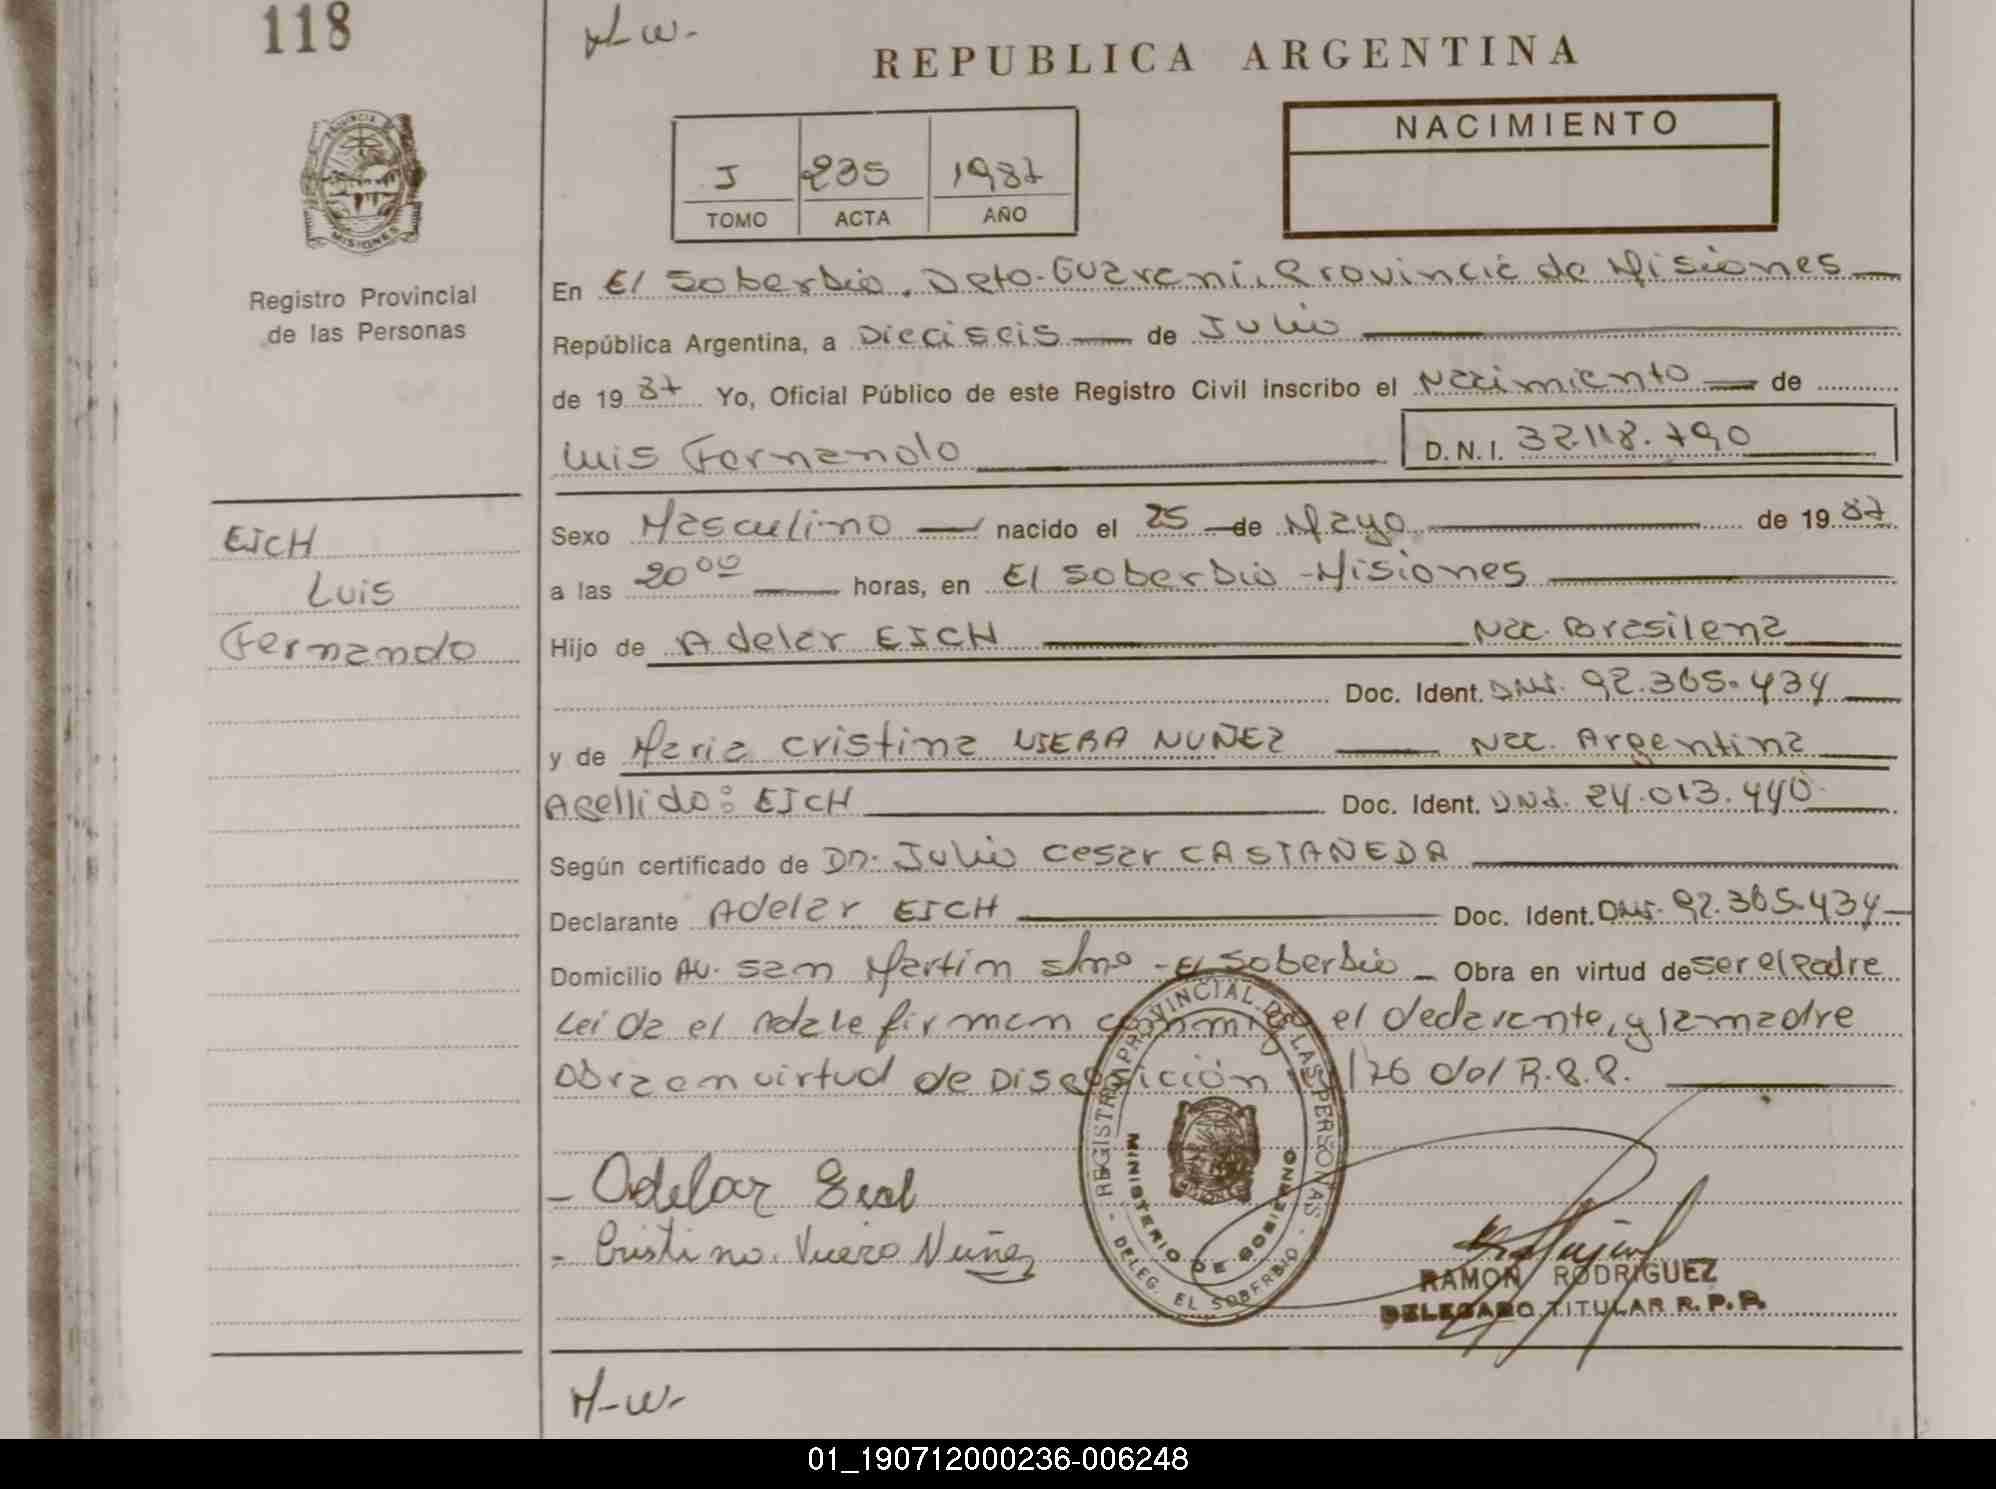 118
H-W-
REPUBLICA ARGENTINA
NACIMIENTO
J 235 1987
TOMO ACTA AÑO
PROVINCIA DE
MISIONES
Registro Provincial
de las Personas
En El Soberbio. Dpto-Guarani, Provincia de Misiones
República Argentina, a Dieciseis de Julio
de 19 87 Yo, Oficial Público de este Registro Civil inscribo el Nacimiento de
Luis Fernando D.N.I. 32.118.790
EICH
Luis
Fernando
Sexo Masculino nacido el 25 de Mayo de 19 87
a las 20 00 horas, en El Soberbio - Misiones
Hijo de Adelar EICH Nac. Brasilena
Doc. Ident. DNI. 92.365.434
y de Maria Cristina VIERA NUÑEZ Nac. Argentina
Apellido: EICH Doc. Ident. DNI. 24.013.440
Según certificado de Dn. Julio Cesar CASTAÑEDA
Declarante Adelar EICH Doc. Ident. DNI. 92.365.434
Domicilio Av. San Martin s/nº - El Soberbio Obra en virtud de ser el Padre
Leida el Acta le firman el declarante, y la madre
Obra en virtud de Disposición /76 del R.P.P.
REGISTRO PROVINCIAL DE LAS PERSONAS
MINISTERIO DE GOBIERNO
- DELEG. EL SOBERBIO -
- Adelar Eich
- Cristina Viera Nuñez
RAMON RODRIGUEZ
DELEGADO TITULAR R. P. P.
H-W-
01_190712000236-006248